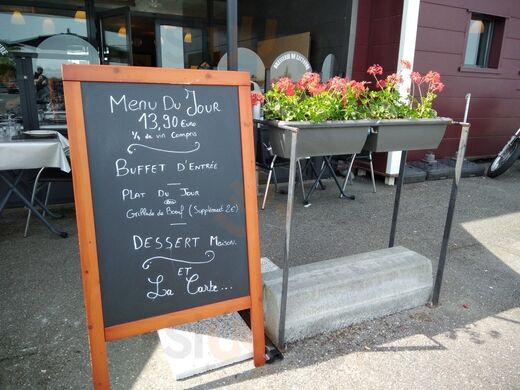 Menu Du Jour
13,90 Euro
1/4 de vin Compris
Buffet d'Entrée
Plat du Jour
ou
Grillade de Boeuf (Supplément 2€)
Dessert Maison
et
La Carte...